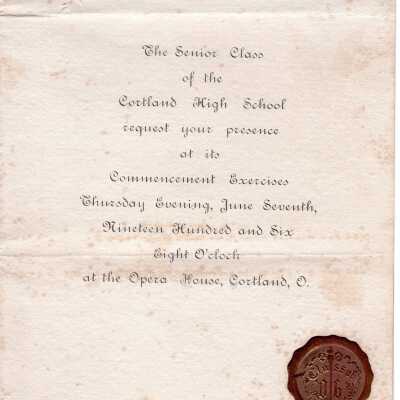 The Senior Class
of the
Cortland High School
request your presence
at its
Commencement Exercises
Thursday Evening, June Seventh,
Nineteen Hundred and Six
Eight O'clock
at the Opera House, Cortland, O.
Class of
06